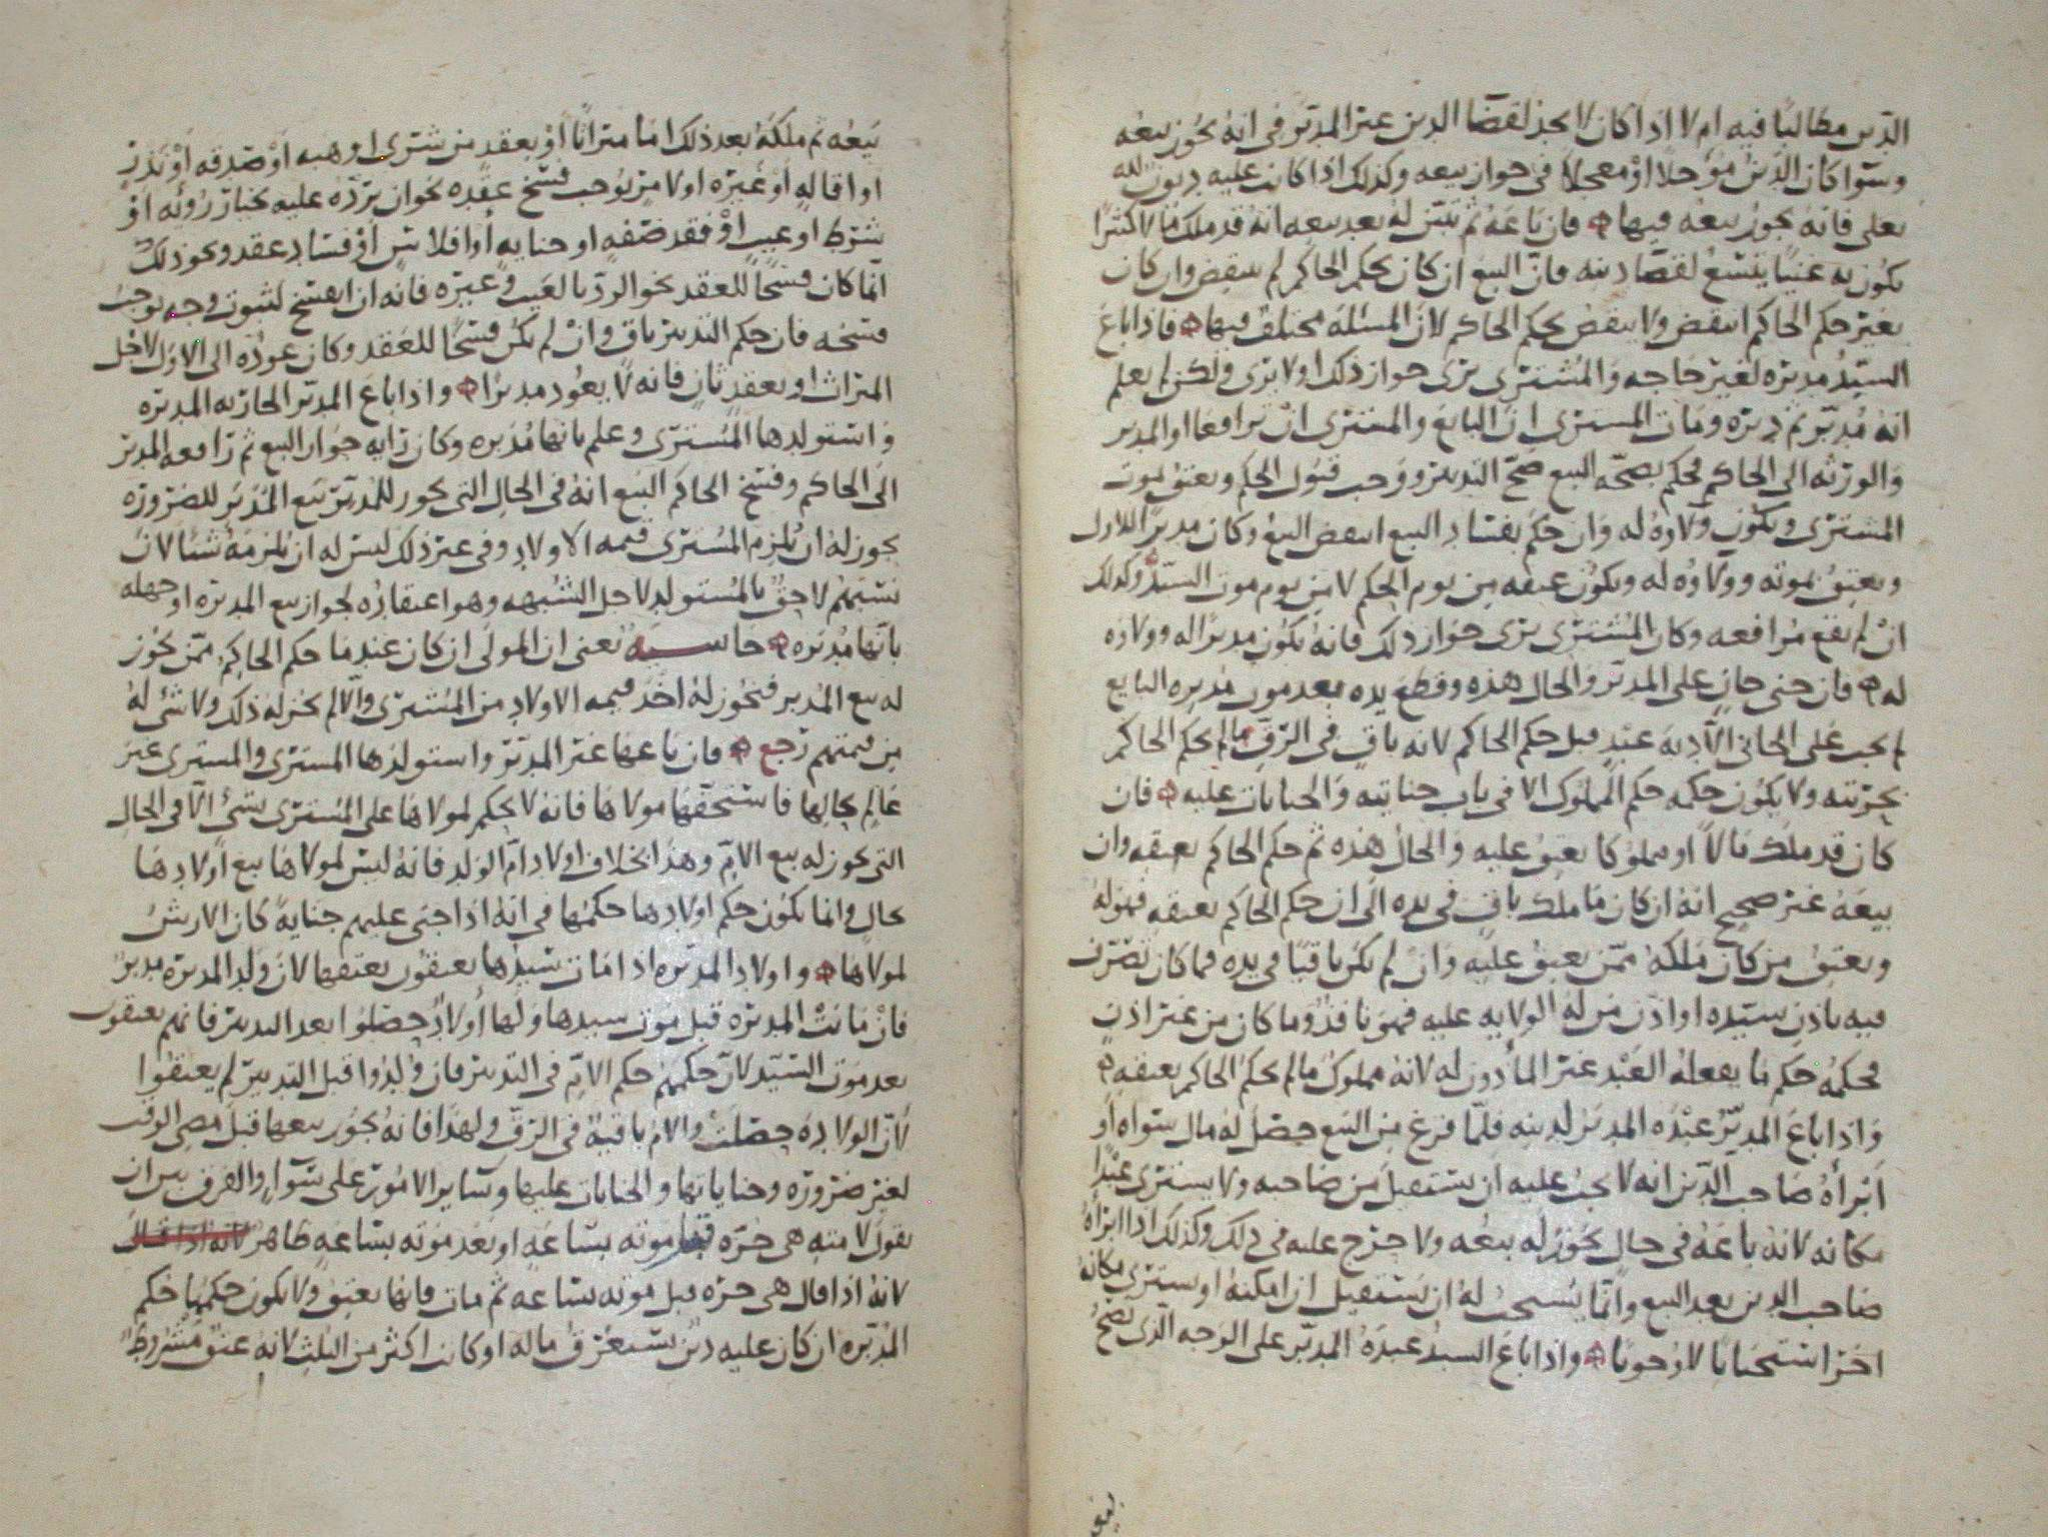 الدين مطالبًا فيه ام لا اذا كان لا يجد لقضا الدين غير المدبر في انه يجوز بيعه
وسوا كان الدين مؤجلًا او معجلا في جواز بيعه وكذلك اذا كانت عليه ديون لله
تعلى فانه يجوز بيعه فيها فان باعه ثم تبين له بعد بيعه انه قد ملك مالا كثيرًا
يكون به غنيًا يتسع لقضا دينه فان البيع ان كان بحكم الحاكم لم ينقض وان كان
بغير حكم الحاكم انتقض ولا ينقض بحكم الحاكم لان المسئلة مختلف فيها فاذا باع
السيد مدبره لغير حاجه والمشتري يرى جواز ذلك او لا يرى ولكن لم يعلم
انه مدبر ثم دبره ومات المشتري ان البايع والمشتري ان ترافعا او المدبر
والورثه الى الحاكم فحكم بصحه البيع صح التدبير ووجب قبول الحكم ويعتق بموت
المشتري ويكون ولاوه له وان حكم بفساد البيع انتقض البيع وكان مدبرًا للاول
ويعتق بموته وولاوه له ويكون عتقه من يوم الحكم لا من يوم موت السيد وكذلك
ان لم يقع مرافعه وكان المشتري يرى جواز ذلك فانه يكون مدبرًا له وولاوه
له فان جنى جانٍ على المدبر والحال هذه وقطع يده بعد موت مدبره البايع
لم يجب على الجاني الا دية عبد قبل حكم الحاكم لانه باق في الرق ما لم يحكم الحاكم
بحريته ولا يكون حكمه حكم المملوك الا في باب جنايته والجنايات عليه فان
كان قد ملك مالًا او مملوكا يعتق عليه والحال هذه ثم حكم الحاكم بعتقه وان
بيعه غير صحيح انه ان كان ما ملك باق في يده الى ان حكم الحاكم بعتقه فهو له
ويعتق من كان ملكه ممن يعتق عليه وان لم يكن باقيًا في يده فما كان تصرف
فيه باذن سيده او اذن من له الولايه عليه فهو نافذ وما كان من غير اذن
فحكمه حكم ما يفعله العبد غير المأذون له لانه مملوك ما لم يحكم الحاكم بعتقه
واذا باع المدبر عبده المدبر لدينه فلما فرغ من البيع حصل له مال سواه او
ابرأه صاحب الدين انه لا يجب عليه ان يستقيل من صاحبه ولا يشتري عبدًا
مكانه لانه باعه في حال يجوز له بيعه ولا حرج عليه في ذلك وكذلك اذا ابرأه
صاحب الدين بعد البيع وانما يستحب له ان يستقيل ان امكنه او يشتري مكانه
اخر استحبابًا لا وجوبًا واذا باع السيد عبده المدبر على الوجه الذي يصح
بيعه ثم ملكه بعد ذلك اما ميراثًا او بعقد من شترى او هبه او صدقه او نذر
او اقاله او غيره اولا من يوجب فسخ عقده نحو ان يرده عليه بخيار رؤيه او
شرط او عيب او فقد صفه او جنايه او افلاس او فساد عقد ونحو ذلك
انما كان فسخًا للعقد نحو الرد بالعيب وغيره فانه ان انفسخ لثبوت وجه يوجب
فسخه فان حكم التدبير باق وان لم يكن فسخًا للعقد وكان عوده الى الاول لاجل
الميراث او بعقد ثان فانه لا يعود مدبرًا واذا باع المدبر الجاريه المدبره
واستولدها المشتري وعلم بانها مدبره وكان رايه جواز البيع ثم رافعه المدبر
الى الحاكم وفسخ الحاكم البيع انه في الحال التي يجوز للمدبر بيع المدبر للضروره
يجوز له ان يلزم المشتري قيمه الاولاد وفي غير ذلك ليس له ان يلزمه شيئا لان
نسبهم لاحق بالمستولد لاجل الشبهه وهو اعتقاده لجواز بيع المدبره او جهله
بانها مدبره حاشيه يعنى ان المولى ان كان عند ما حكم الحاكم ممن يجوز
له بيع المدبر فيجوز له اخذ قيمه الاولاد من المشتري والا لم يجز له ذلك ولا شي له
من قيمتهم رجع فان باعها غير المدبر واستولدها المشتري والمشتري غير
عالم بحالها فاستحقها مولاها فانه لا يحكم لمولاها على المشتري بشئ الا في الحال
التي يجوز له بيع الام وهذا بخلاف اولاد ام الولد فانه ليس لمولاها بيع اولادها
بحال وانما يكون حكم اولادها حكمها في انه اذا جنى عليهم جنايةً كان الارش
لمولاها واولاد المدبره اذا مات سيدها يعتقون بعتقها لان ولد المدبره مدبر
فان ماتت المدبره قبل موت سيدها ولها اولاد حصلوا بعد التدبير فانهم يعتقون
بعد موت السيد لان حكمهم حكم الام في التدبير فان ولدوا قبل التدبير لم يعتقوا
لان الولاده حصلت والام باقية في الرق ولهذا فانه يجوز بيعها قبل مضي الوقت
لغير ضروره وجناياتها والجنايات عليها وسائر الامور على سواء والفرق بين ان
يقول لامته هي حره قبل موته بساعه او بعد موته بساعه ظاهر لانه اذا قال
لانه اذا قال هي حره قبل موته بساعه ثم مات فانها تعتق ولا يكون حكمها حكم
المدبره ان كان عليه دين يستغرق ماله او كانت اكثر من الثلث لانه عتق مشروط